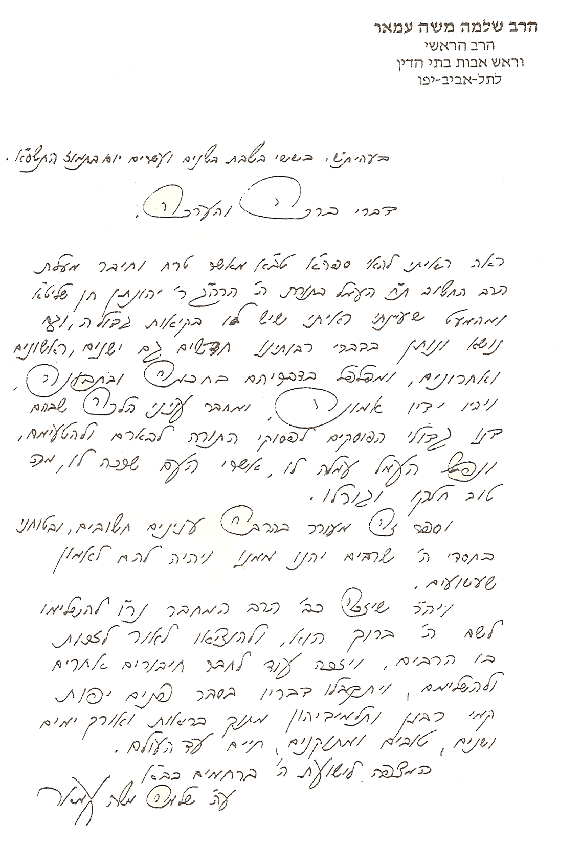 הרב שלמה משה עמאר
הרב הראשי
וראש אבות בתי הדין
לתל-אביב-יפו
בעהית"ש, בששי בשבת בשנים ועשרים יום בתמוז התשס"א.
דברי ברכה והערכה.
ראה ראיתי להאי ספרא טבא מאשר טרח וחיבר מעלת
הרב החשוב העמל בתורת ה' הרה"ג ר' יהונתן חן שליט"א
ומהמעט שעיינתי ראיתי שיש לו בקיאות גדולה, וגם
נושא ונותן בדברי רבותינו חדשים גם ישנים, ראשונים
ואחרונים, ומפלפל בדבריהם בחכמה ובתבונה,
ויהיו ידיו אמונה, ומחבר עניני הלכה שבהם
דנו גדולי הפוסקים לפסוקי התורה לבארם ולהטעימם,
העמל עמלה לו, אשרי העם שככה לו, מה
טוב חלקו וגורלו.
וספר זה מעורר בהרבה ענינים חשובים, ובטוחני
בחסדי ה' שרבים יהנו ממנו ויהיה להם לאמון
שעשועים.
ויה"ר שיזכה כב' הרב המחבר נר"ו להשלימו
לשם ה' ברוך הוא, ולהוציאו לאור לזכות
בו הרבים, ויזכה עוד לחבר חיבורים אחרים
ולהשלימם, ויתקבלו דבריו בסבר פנים יפות
קמי רבנן ותלמידיהון מתוך בריאות ואורך ימים
ושנים, טובים ומתוקנים, חיים עד העולם.
המצפה לישועת ה' ברחמים כב"א
ע"ה שלמה משה עמאר